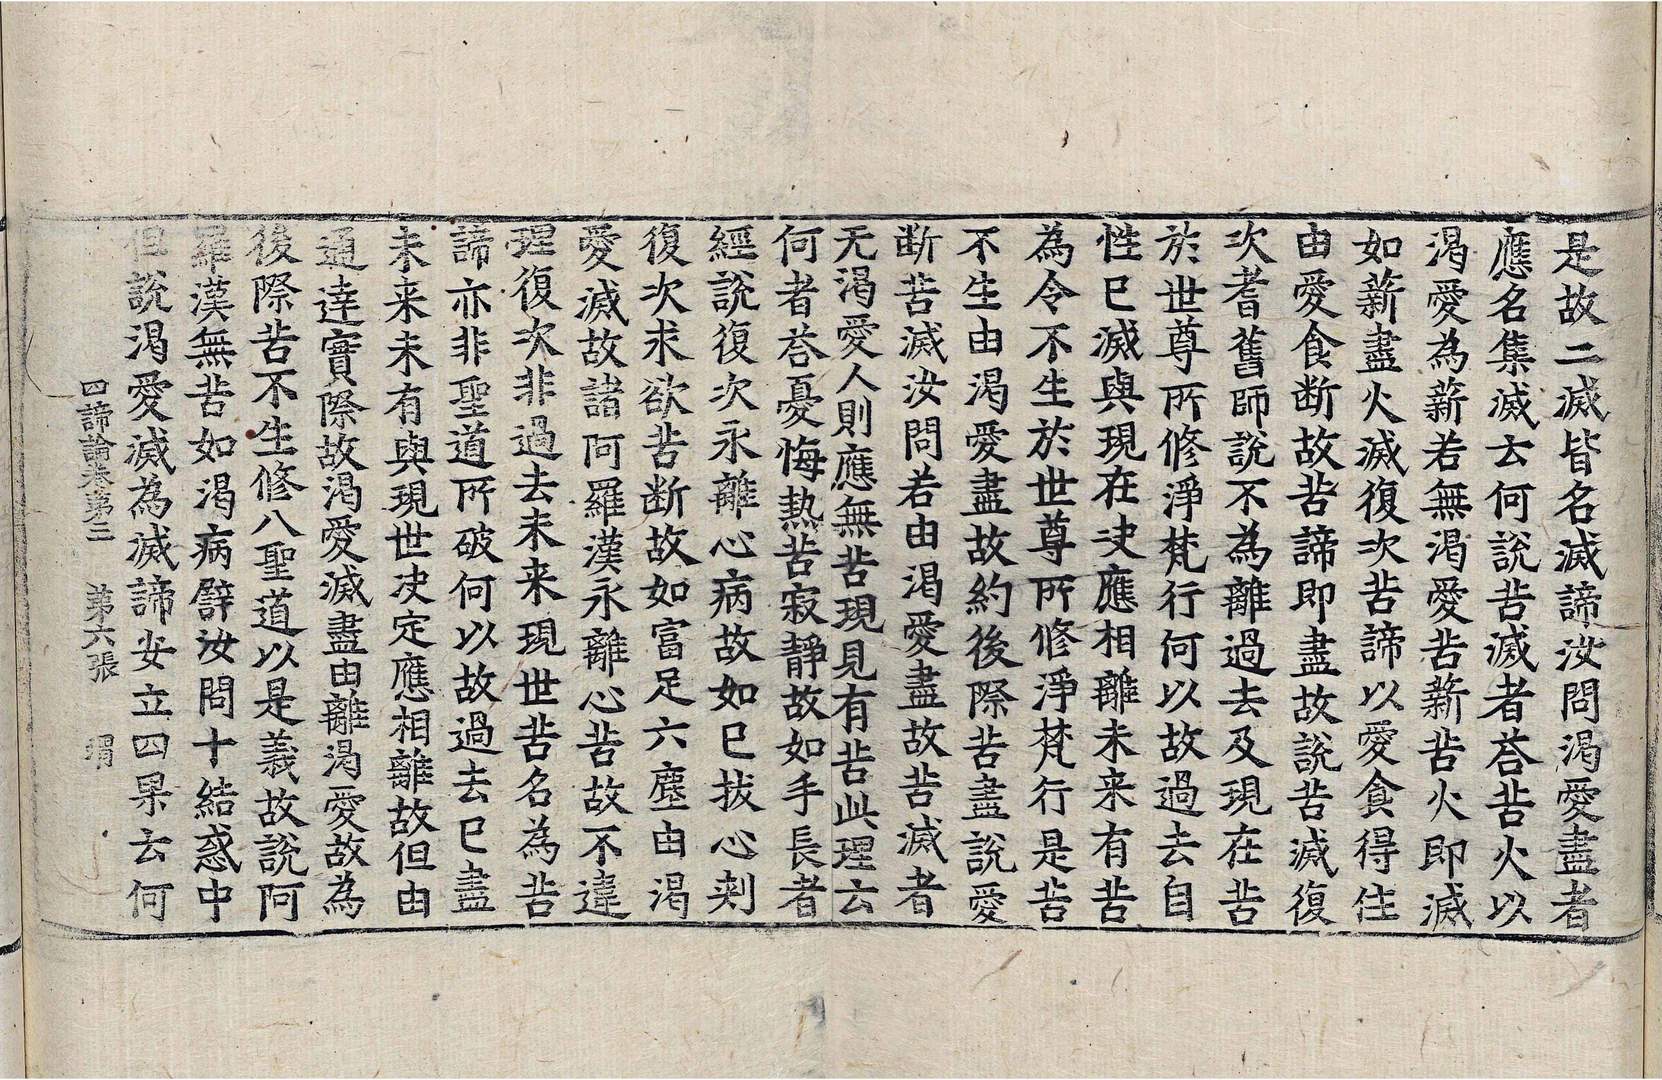 是故二滅皆名滅諦汝問渴愛盡者
應名集滅云何說苦滅者荅苦火以
渴愛為薪若無渴愛苦薪苦火即滅
如薪盡火滅復次苦諦以愛食得住
由愛食断故苦諦即盡故說苦滅復
次耆舊師說不為離過去及現在苦
於世尊所修淨梵行何以故過去自
性已滅與現在決應相離未来有苦
為令不生於世尊所修淨梵行是苦
不生由渴愛盡故約後際苦盡說愛
断苦滅汝問若由渴愛盡故苦滅者
无渴愛人則應無苦現見有苦此理云
何者荅憂悔熱苦寂靜故如手長者
經說復次永離心病故如已拔心刾
復次求欲苦断故如富足六塵由渴
愛滅故諸阿羅漢永離心苦故不違
理復次非過去未来現世苦名為苦
諦亦非聖道所破何以故過去已盡
未来未有與現世決定應相離故但由
通達實際故渴愛滅盡由離渴愛故為
後際苦不生修八聖道以是義故說阿
羅漢無苦如渴病譬汝問十結惑中
但說渴愛滅為滅諦安立四果云何
四諦論卷第三　第六張